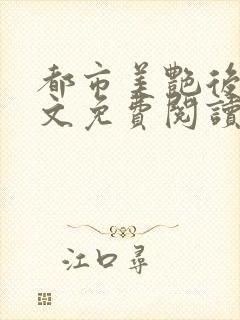 都市美艷後
文免費閱讀
江口尋